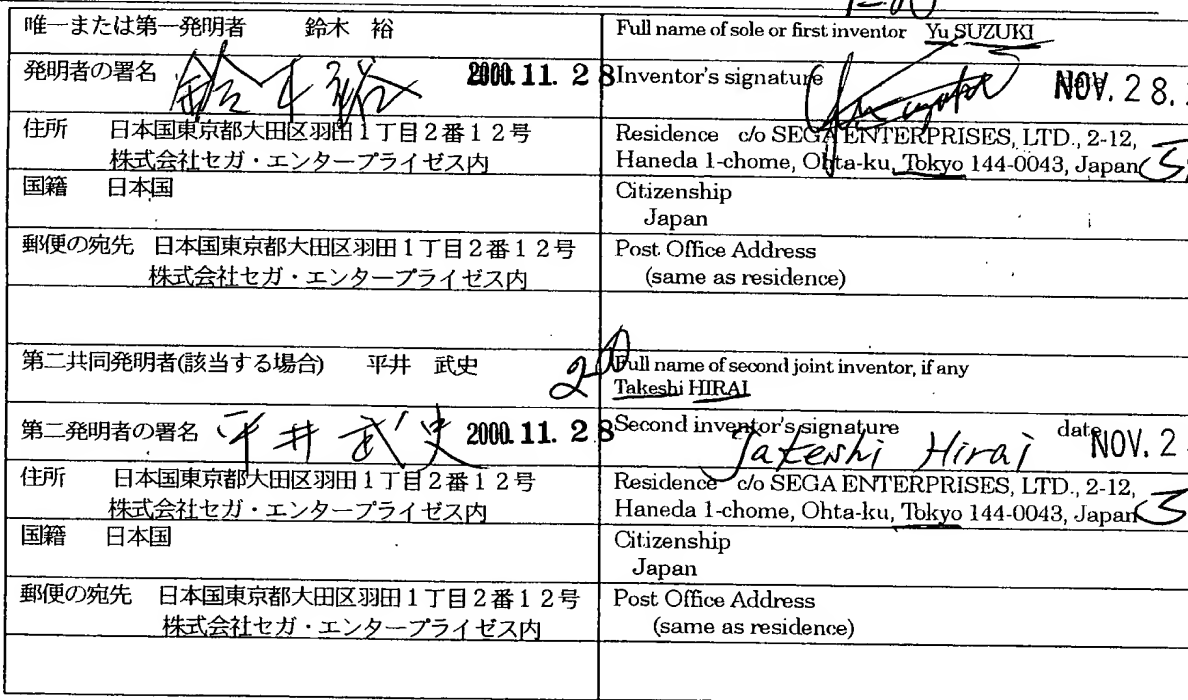 1-00
唯一または第一発明者 鈴木 裕
Full name of sole or first inventor Yu SUZUKI
発明者の署名 鈴木裕 2000.11.28
Inventor's signature NOV. 28.
住所 日本国東京都大田区羽田1丁目2番12号
株式会社セガ・エンタープライゼス内
Residence c/o SEGA ENTERPRISES, LTD., 2-12,
Haneda 1-chome, Ohta-ku, Tokyo 144-0043, Japan
国籍 日本国
Citizenship
Japan
郵便の宛先 日本国東京都大田区羽田1丁目2番12号
株式会社セガ・エンタープライゼス内
Post Office Address
(same as residence)
第二共同発明者(該当する場合) 平井 武史
2-00 Full name of second joint inventor, if any
Takeshi HIRAI
第二発明者の署名 平井武史 2000.11.28
Second inventor's signature date
Takeshi Hirai NOV. 2
住所 日本国東京都大田区羽田1丁目2番12号
株式会社セガ・エンタープライゼス内
Residence c/o SEGA ENTERPRISES, LTD., 2-12,
Haneda 1-chome, Ohta-ku, Tokyo 144-0043, Japan
国籍 日本国
Citizenship
Japan
郵便の宛先 日本国東京都大田区羽田1丁目2番12号
株式会社セガ・エンタープライゼス内
Post Office Address
(same as residence)